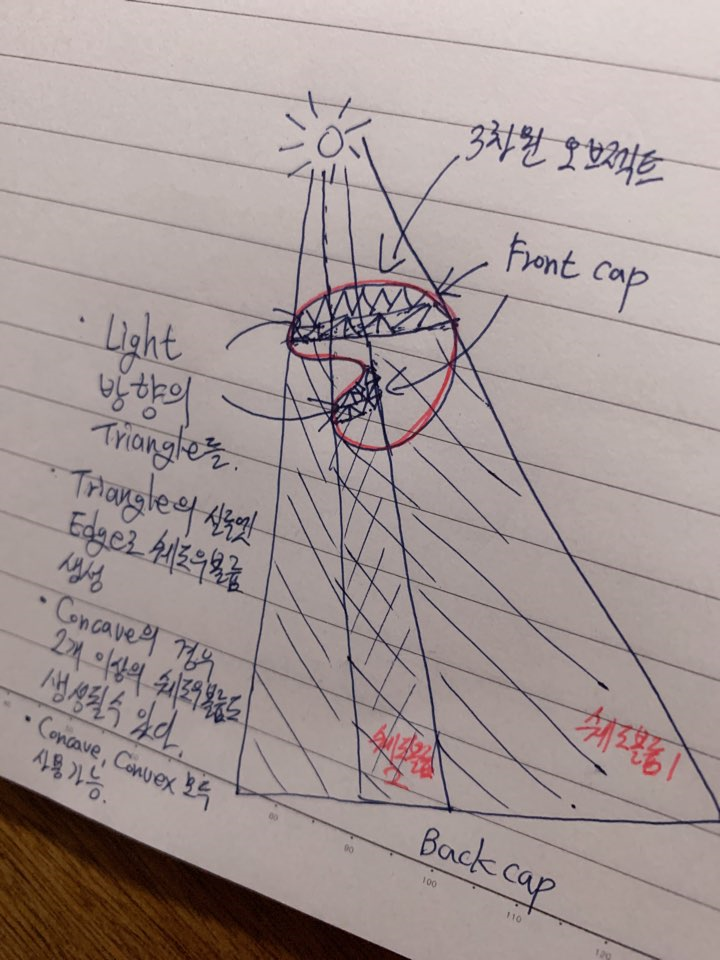 3차원 오브젝트
Front cap
· Light
방향의
Triangle들.
· Triangle의 실루엣
Edge로 쉐도우볼륨
생성
· Concave의 경우
2개 이상의 쉐도우볼륨도
생성될수 있다.
· Concave, Convex 모두
사용가능.
쉐도볼륨
2
쉐도볼륨1
Back cap
80
90
100
110
120